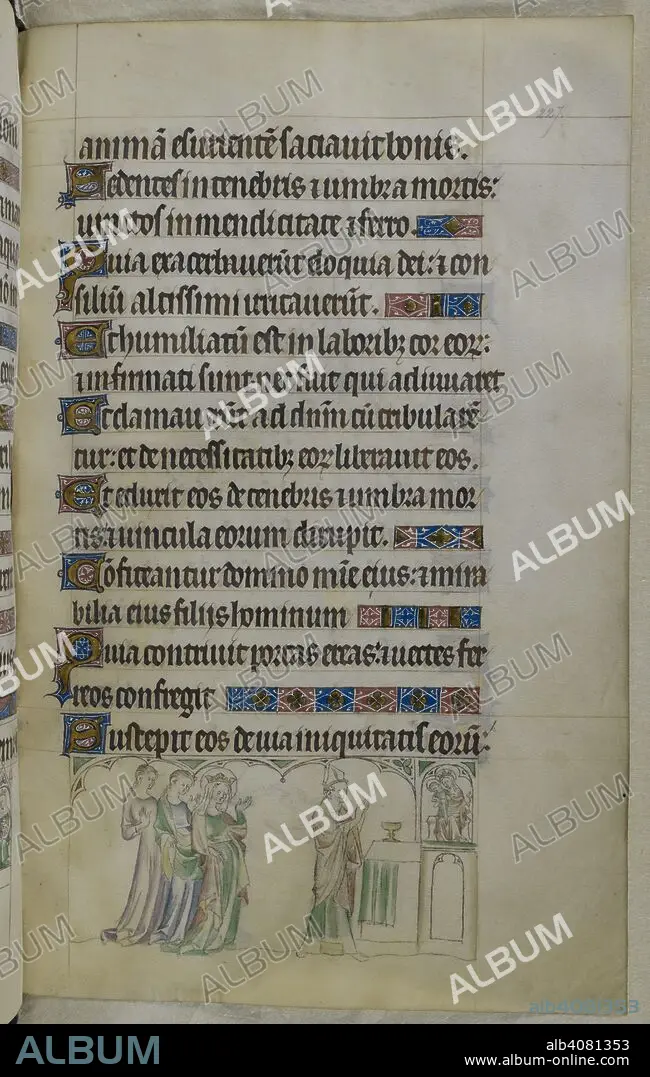 227.
animā esurientē saciauit bonis.
Sedentes in tenebris ⁊ umbra mortis:
uinctos in mendicitate ⁊ ferro.
Quia exacerbauerūt eloquia dei: ⁊ con
siliū altissimi irritauerūt.
Et humiliatū est in laboribꝫ cor eoꝝ:
⁊ infirmati sunt nec fuit qui adiuuaret
Et clamauerūt ad dn̄m cū tribularē
tur: et de necessitatibꝫ eoꝝ liberauit eos.
Et eduxit eos de tenebris ⁊ umbra mor
tis ⁊ uincula eorum dirupit.
Cōfiteantur domino mīe eius: ⁊ mira
bilia eius filijs hominum
Quia contriuit portas ereas: ⁊ uectes fer
reos confregit
Suscepit eos de uia iniquitatis eorū:
ALBUM
alb4081353
ALBUM
alb4081353
www.album-online.com